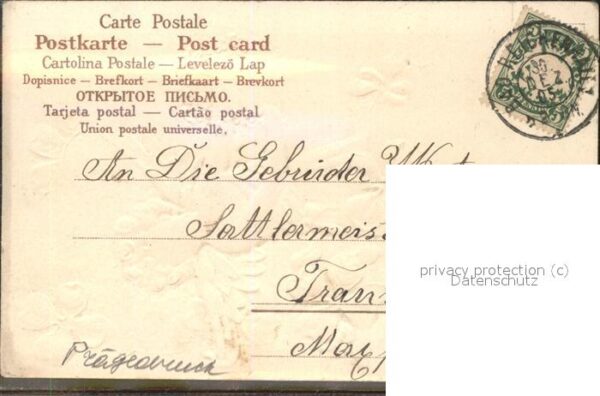 Carte Postale
Postkarte — Post card
Cartolina Postale — Levelező Lap
Dopisnice — Brefkort — Briefkaart — Brevkort
ОТКРЫТОЕ ПИСЬМО.
Tarjeta postal — Cartão postal
Union postale universelle.
An Die Gebrüder
Sattlermeis
privacy protection (c)
Datenschutz
Prägedruck